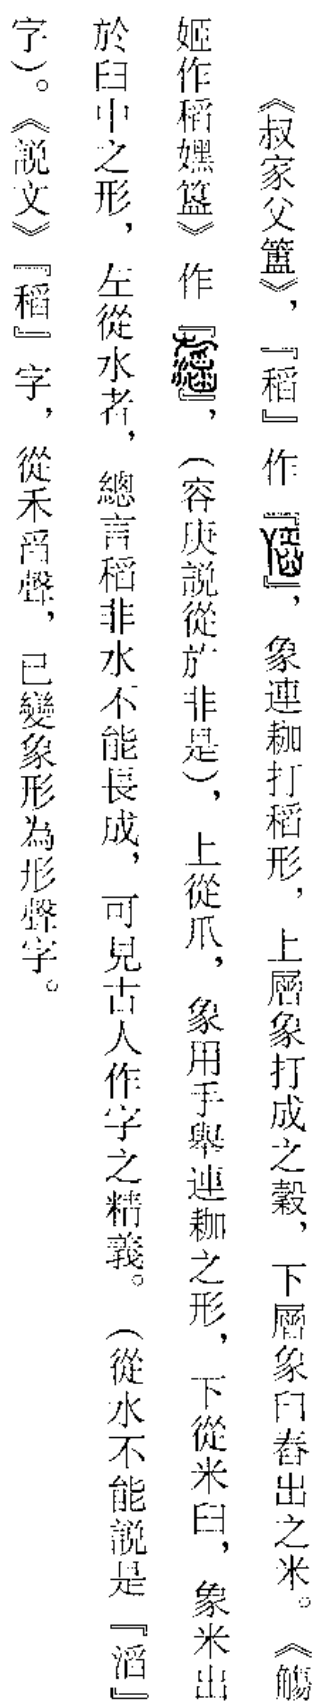 《叔家父簠》，『稻』作『』，象連耞打稻形，上層象打成之穀，下層象臼舂出之米。《觴
姬作稻嬺簋》作『』，（容庚說從㫃非是），上從爪，象用手舉連耞之形，下從米臼，象米出
於臼中之形，左從水者，總言稻非水不能長成，可見古人作字之精義。（從水不能說是『滔』
字）。《說文》『稻』字，從禾舀聲，已變象形為形聲字。